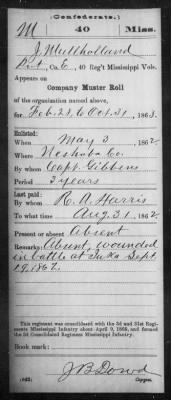 (Confederate.)
M 40 Miss.
J Mullholland
Pvt, Co. E, 40 Reg't Mississippi Vols.
Appears on
Company Muster Roll
of the organization named above,
for Feb. 28, to Oct. 31, 1863.
Enlisted:
When May 3, 1862.
Where Neshoba Co.
By whom Capt. Gibbens
Period 3 years
Last paid:
By whom R. A. Harris
To what time Aug. 31, 1862.
Present or absent Absent
Remarks: Absent, wounded
in battle at Iuka Sept.
19, 1862.
This regiment was consolidated with the 3d and 31st Regiments
Mississippi Infantry about April 9, 1865, and formed
the 3d Consolidated Regiment Mississippi Infantry.
Book mark:
J B Dowd
(642) Copyist.